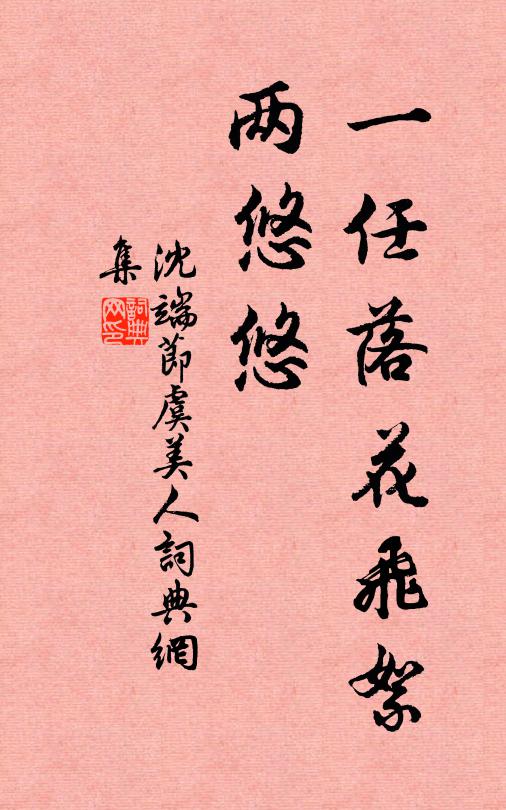 一任落花飛絮
两悠悠
沈端節虞美人詞典網
集
詞典
网印